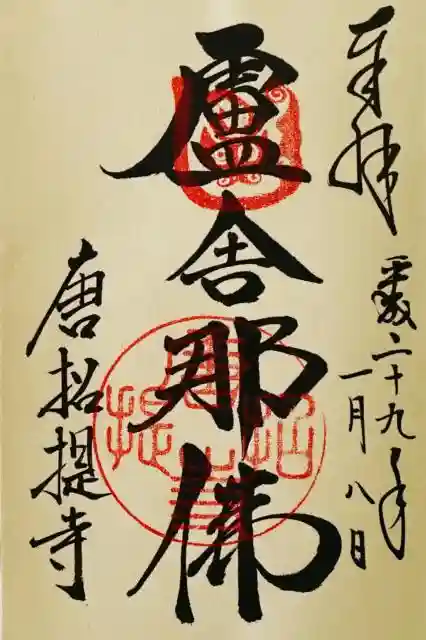 奉拝
平成二十九年
一月八日
盧舎那佛
唐招提寺
唐招提寺